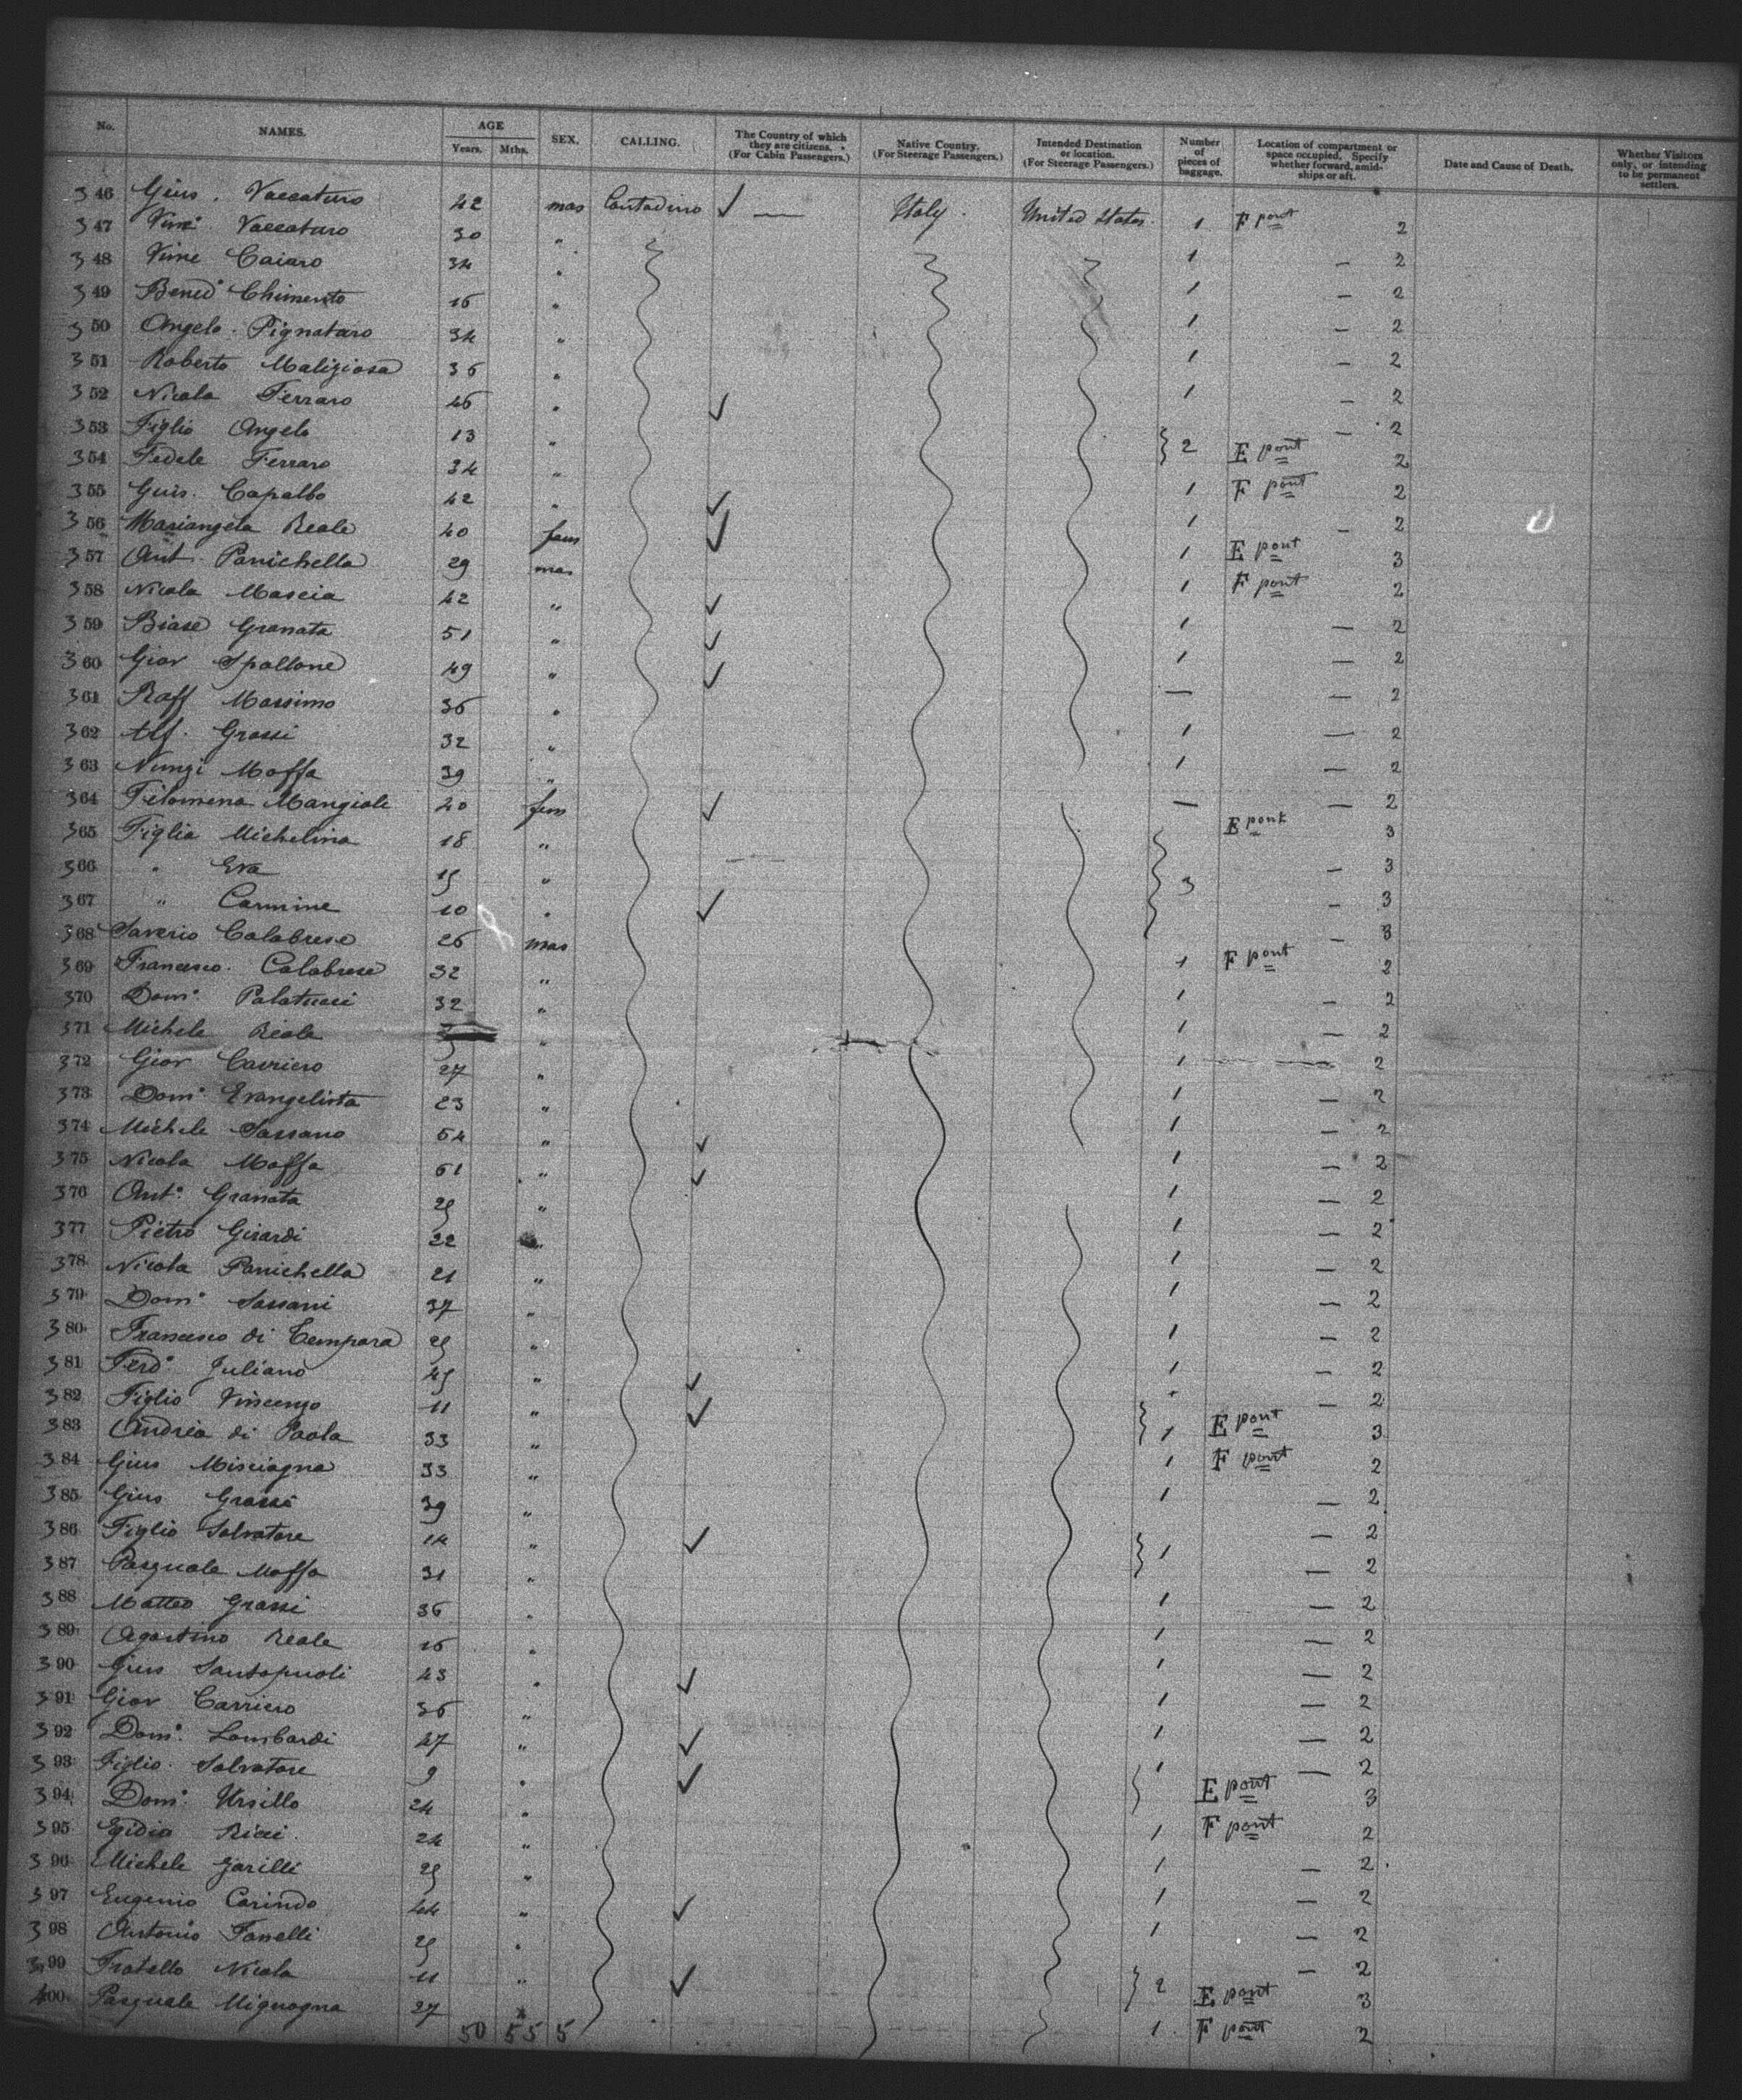 No. NAMES. AGE Years. Mths. SEX. CALLING. The Country of which they are citizens. (For Cabin Passengers.) Native Country. (For Steerage Passengers.) Intended Destination or location. (For Steerage Passengers.) Number of pieces of baggage. Location of compartment or space occupied. Specify whether forward, amidships or aft. Date and Cause of Death. Whether Visitors only, or intending to be permanent settlers.
346 Gius. Vaccaturo 42 mas Contadino ✓ — Italy. United States. 1 F pont 2
347 Vinc° Vaccaturo 30 " 1 — 2
348 Vinc Caiaro 34 " 1 — 2
349 Bened° Chimento 16 " 1 — 2
350 Angelo Pignataro 34 " 1 — 2
351 Roberto Maliziosa 36 " 1 — 2
352 Nicola Ferraro 46 " ✓ — 2
353 Figlio Angelo 13 " } 2 E pont 2
354 Fedele Ferraro 34 " 1 F pont 2
355 Gius. Capalbo 42 " ✓ 1 — 2
356 Mariangela Reale 40 fem ✓ 1 E pont 3
357 Ant. Panichella 29 mas 1 F pont 2
358 Nicola Mascia 42 " ✓ 1 — 2
359 Biase Granata 51 " ✓ 1 — 2
360 Giov Spallone 49 " ✓ — — 2
361 Raff Massimo 36 " 1 — 2
362 Alf. Grassi 32 " 1 — 2
363 Nunzi Moffa 39 " — — 2
364 Filomena Mangiole 40 fem ✓ E pont 3
365 Figlia Michelina 18 " — 3
366 " Eva 15 " } 3 — 3
367 " Carmine 10 " ✓ — 3
368 Saverio Calabrese 26 mas 1 F pont 2
369 Francesco. Calabrese 32 " 1 — 2
370 Dom° Palatucci 32 " 1 — 2
371 Michele Reale " 1 — 2
372 Giov Carriero 27 " 1 — 2
373 Dom° Evangelista 23 " 1 — 2
374 Michele Sassano 54 " ✓ 1 — 2
375 Nicola Moffa 61 " ✓ 1 — 2
376 Ant° Granata 25 " 1 — 2
377 Pietro Girardi 22 " 1 — 2
378 Nicola Panichella 21 " 1 — 2
379 Dom° Sassani 37 " 1 — 2
380 Francesco di Tempora 25 " 1 — 2
381 Ferd° Juliano 45 " ✓ — 2
382 Figlio Vincenzo 11 " ✓ } 1 E pont 3
383 Andrea di Paola 33 " 1 F pont 2
384 Gius Misciagna 33 " 1 — 2
385 Gius Grassi 39 " — 2
386 Figlio Salvatore 14 " ✓ } 1 — 2
387 Pasquale Moffa 31 " 1 — 2
388 Matteo Grassi 36 " 1 — 2
389 Agostino Reale 16 " 1 — 2
390 Gius Santopuoli 43 " ✓ 1 — 2
391 Giov Carriero 36 " 1 — 2
392 Dom° Lombardi 47 " ✓ 1 — 2
393 Figlio Salvatore 9 " ✓ } E pont 3
394 Dom° Ursillo 24 " 1 F pont 2
395 Egidio Ricci 24 " 1 — 2
396 Michele Jarilli 25 " 1 — 2
397 Eugenio Carindo 44 " ✓ 1 — 2
398 Antonio Fanelli 25 " — 2
399 Fratello Nicola 11 " ✓ } 2 E pont 3
400 Pasquale Mignogna 27 " 1 F pont 2
50 55 5